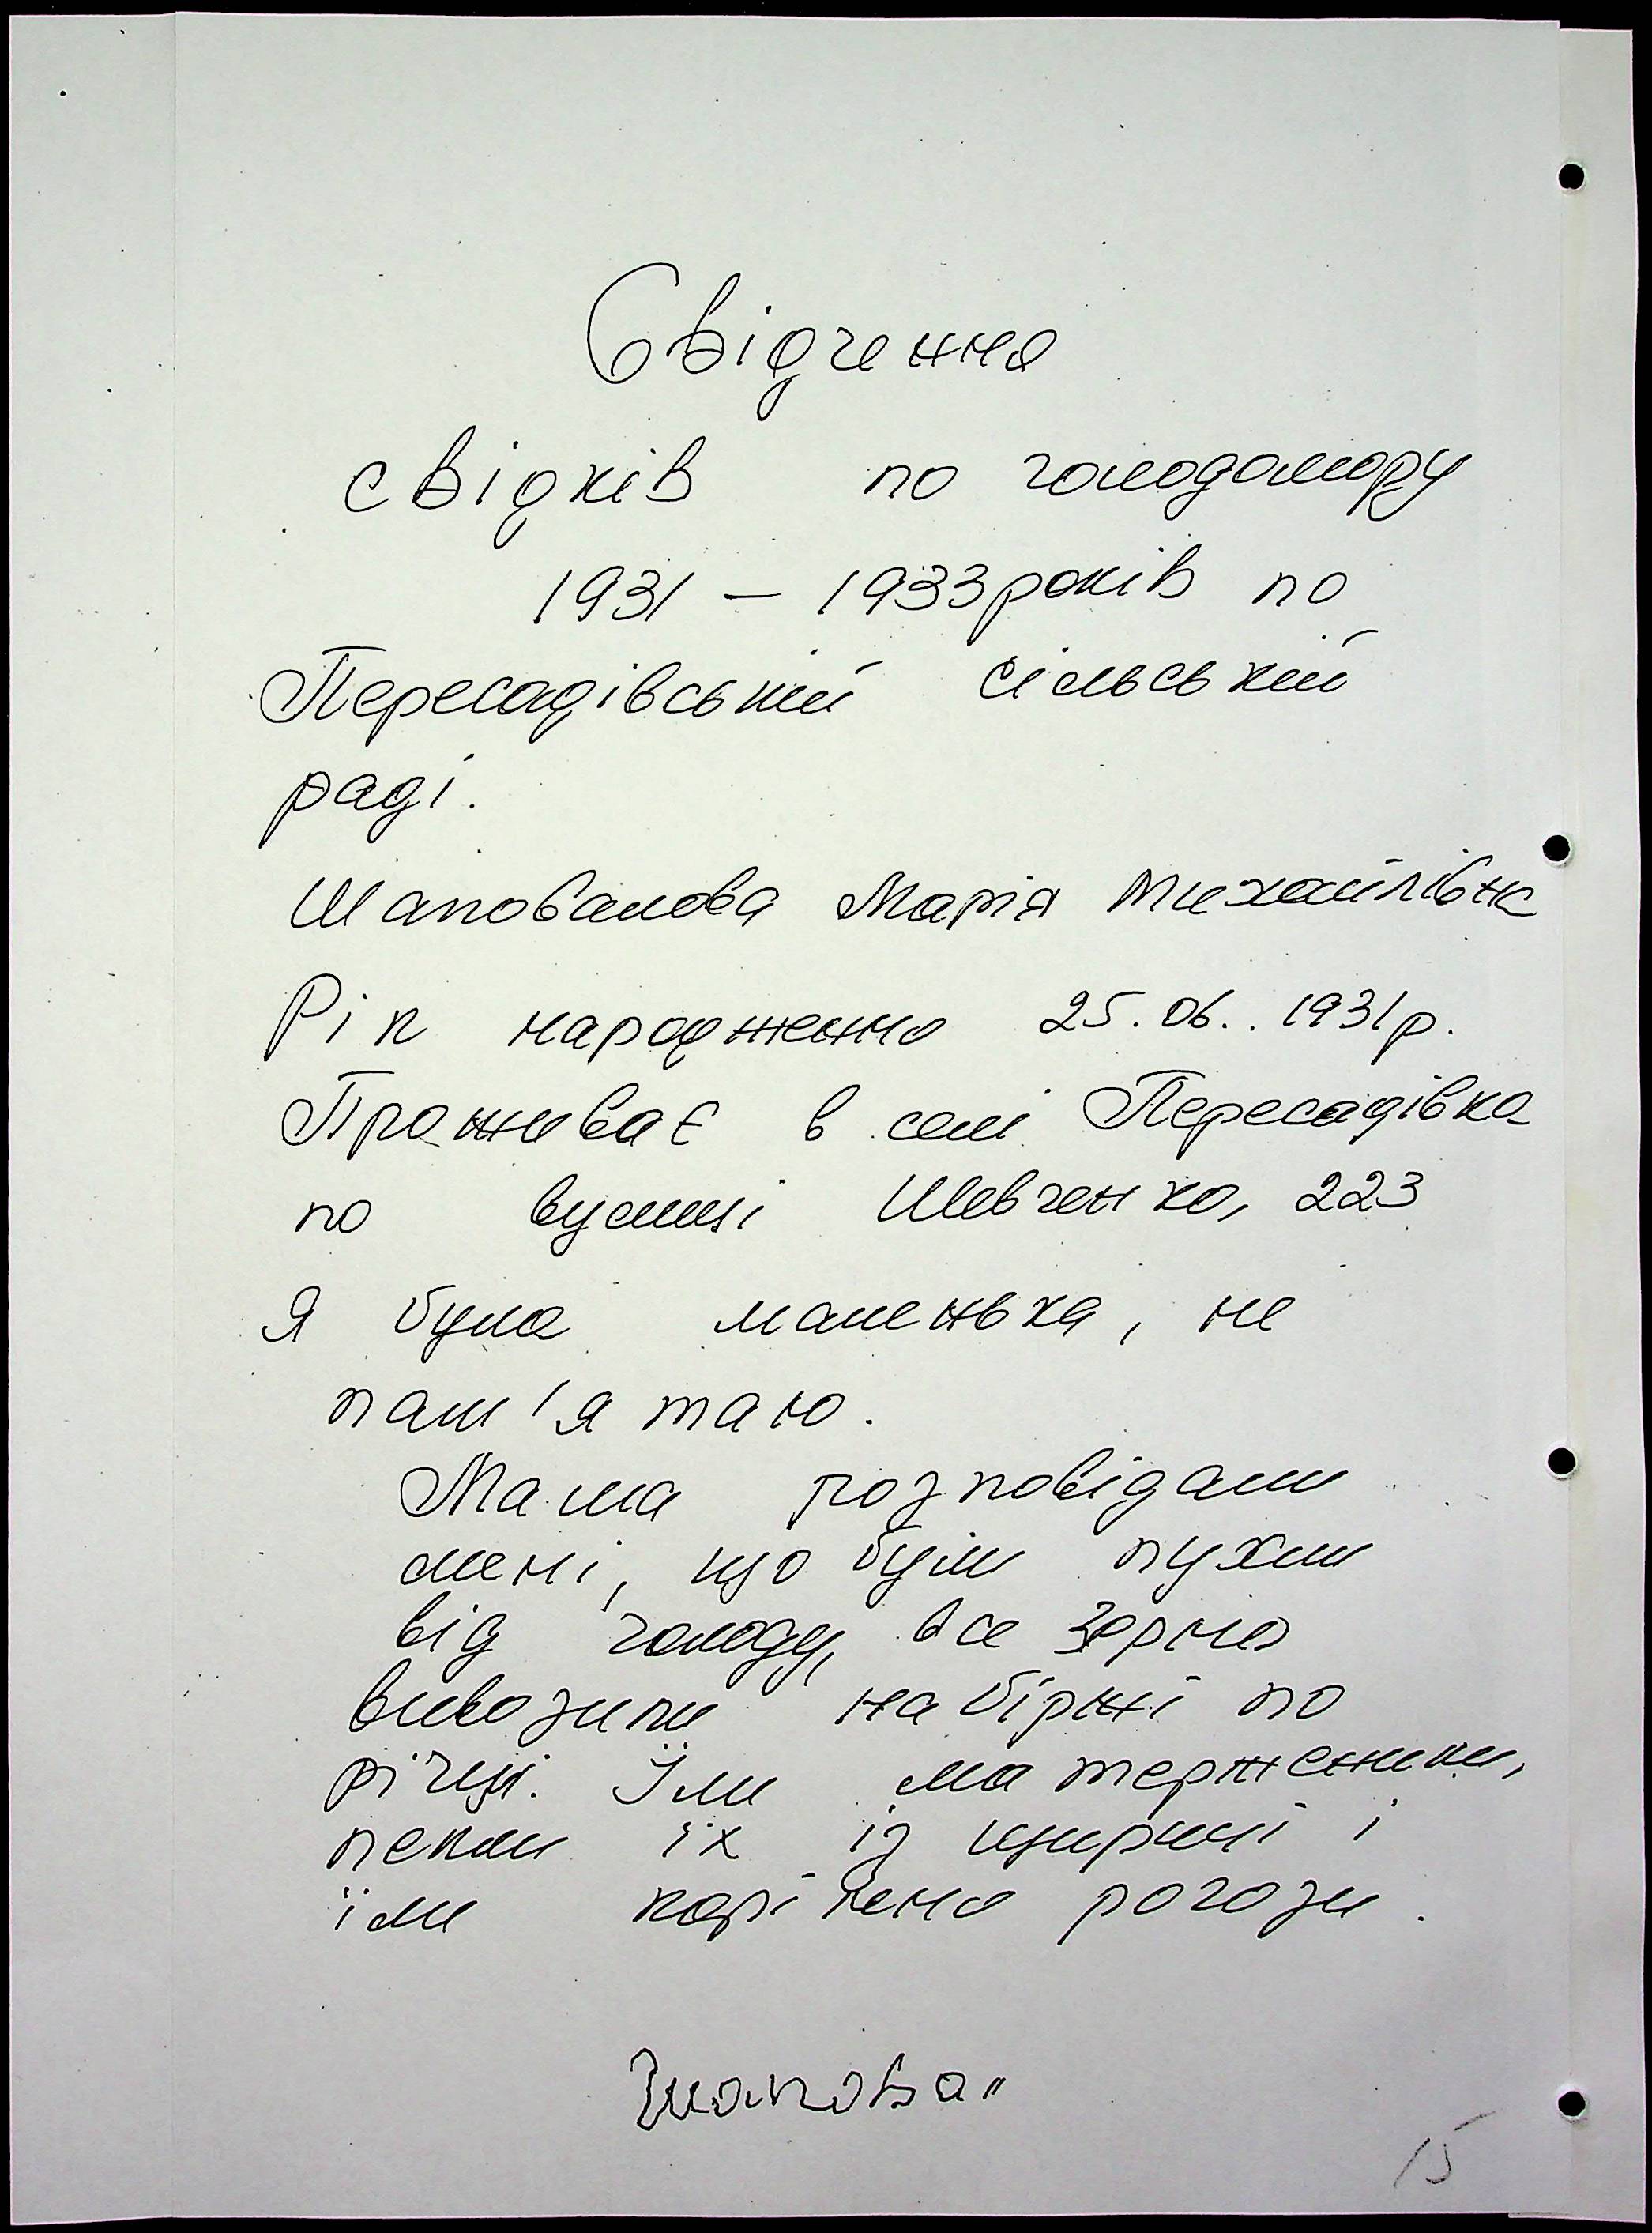 Свідчення
свідків по голодомору
1931 – 1933 років по
Пересадівській сільській
раді.
Шаповалова Марія Михайлівн
Рік народження 25.06.. 1931 р.
Проживає в селі Пересадівка
по вулиці Шевченко, 223
Я була маленька, не
пам'ятаю.
Мама розповідали
мені, що були пухли
від голоду, все зерно
вивозили на біржі по
річці. Їли матерженики,
пекли їх із щириці і
їли коріння рогози.
Шапова
15